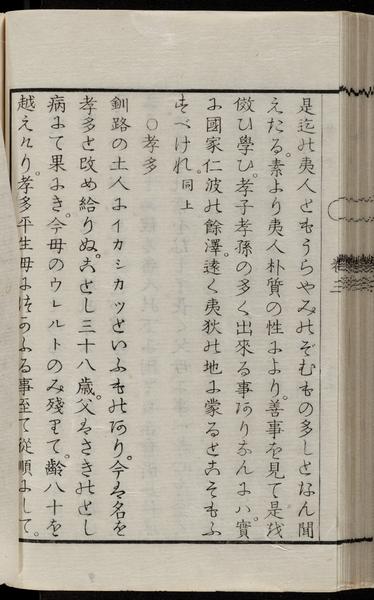 是迄の夷人ともうらやみのぞむものの多しとなん聞
えたる。素より夷人朴質の性により。善事を見て是を
傚ひ學び。孝子孝孫の多く出來る事ありなんには。實
に國家仁波の餘澤。遠く夷狄の地に蒙るとこそもふ
すべけれ。同上
○孝多
釧路の土人にイカシカツといふものあり。今は名を
孝多と改め給りぬ。ことし三十八歳。父はさきのとし
病にて果にき。今母のウレルトのみ殘りて。齡八十を
越えけり。孝多平生母につかふる事至て從順にして。
卷三